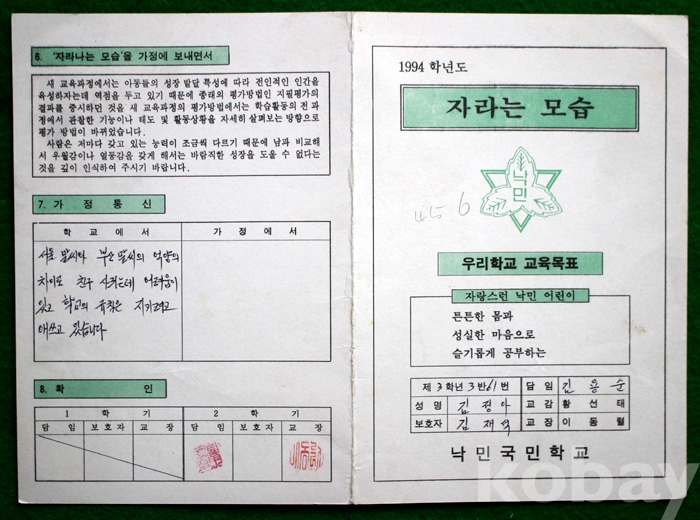 6. '자라나는 모습'을 가정에 보내면서
새 교육과정에서는 아동들의 성장 발달 특성에 따라 전인적인 인간을
육성하자는데 역점을 두고 있기 때문에 종래의 평가방법인 지필평가의
결과를 중시하던 것을 새 교육과정의 평가방법에서는 학습활동의 전 과
정에서 관찰한 기능이나 태도 및 활동상황을 자세히 살펴보는 방향으로
평가 방법이 바뀌었습니다.
사람은 저마다 갖고 있는 능력이 조금씩 다르기 때문에 남과 비교해
서 우월감이나 열등감을 갖게 해서는 바람직한 성장을 도울 수 없다는
것을 깊이 인식하여 주시기 바랍니다.
7. 가 정 통 신
학 교 에 서 가 정 에 서
서울 말씨와 부산 말씨의 억양의
차이로 친구 사귀는데 어려움이
있고 학교의 규칙은 지키려고
애쓰고 있습니다
8. 확 인
1 학 기 2 학 기
담 임 보호자 교 장 담 임 보호자 교 장
1994 학년도
자라는 모습
낙민
456
우리학교 교육목표
자랑스런 낙민 어린이
튼튼한 몸과
성실한 마음으로
슬기롭게 공부하는
제 3 학년 3 반 61 번 담 임 김 용 순
성 명 김 정 아 교 감 황 선 태
보호자 김 재 석 교 장 이 동 렬
낙 민 국 민 학 교
kobay